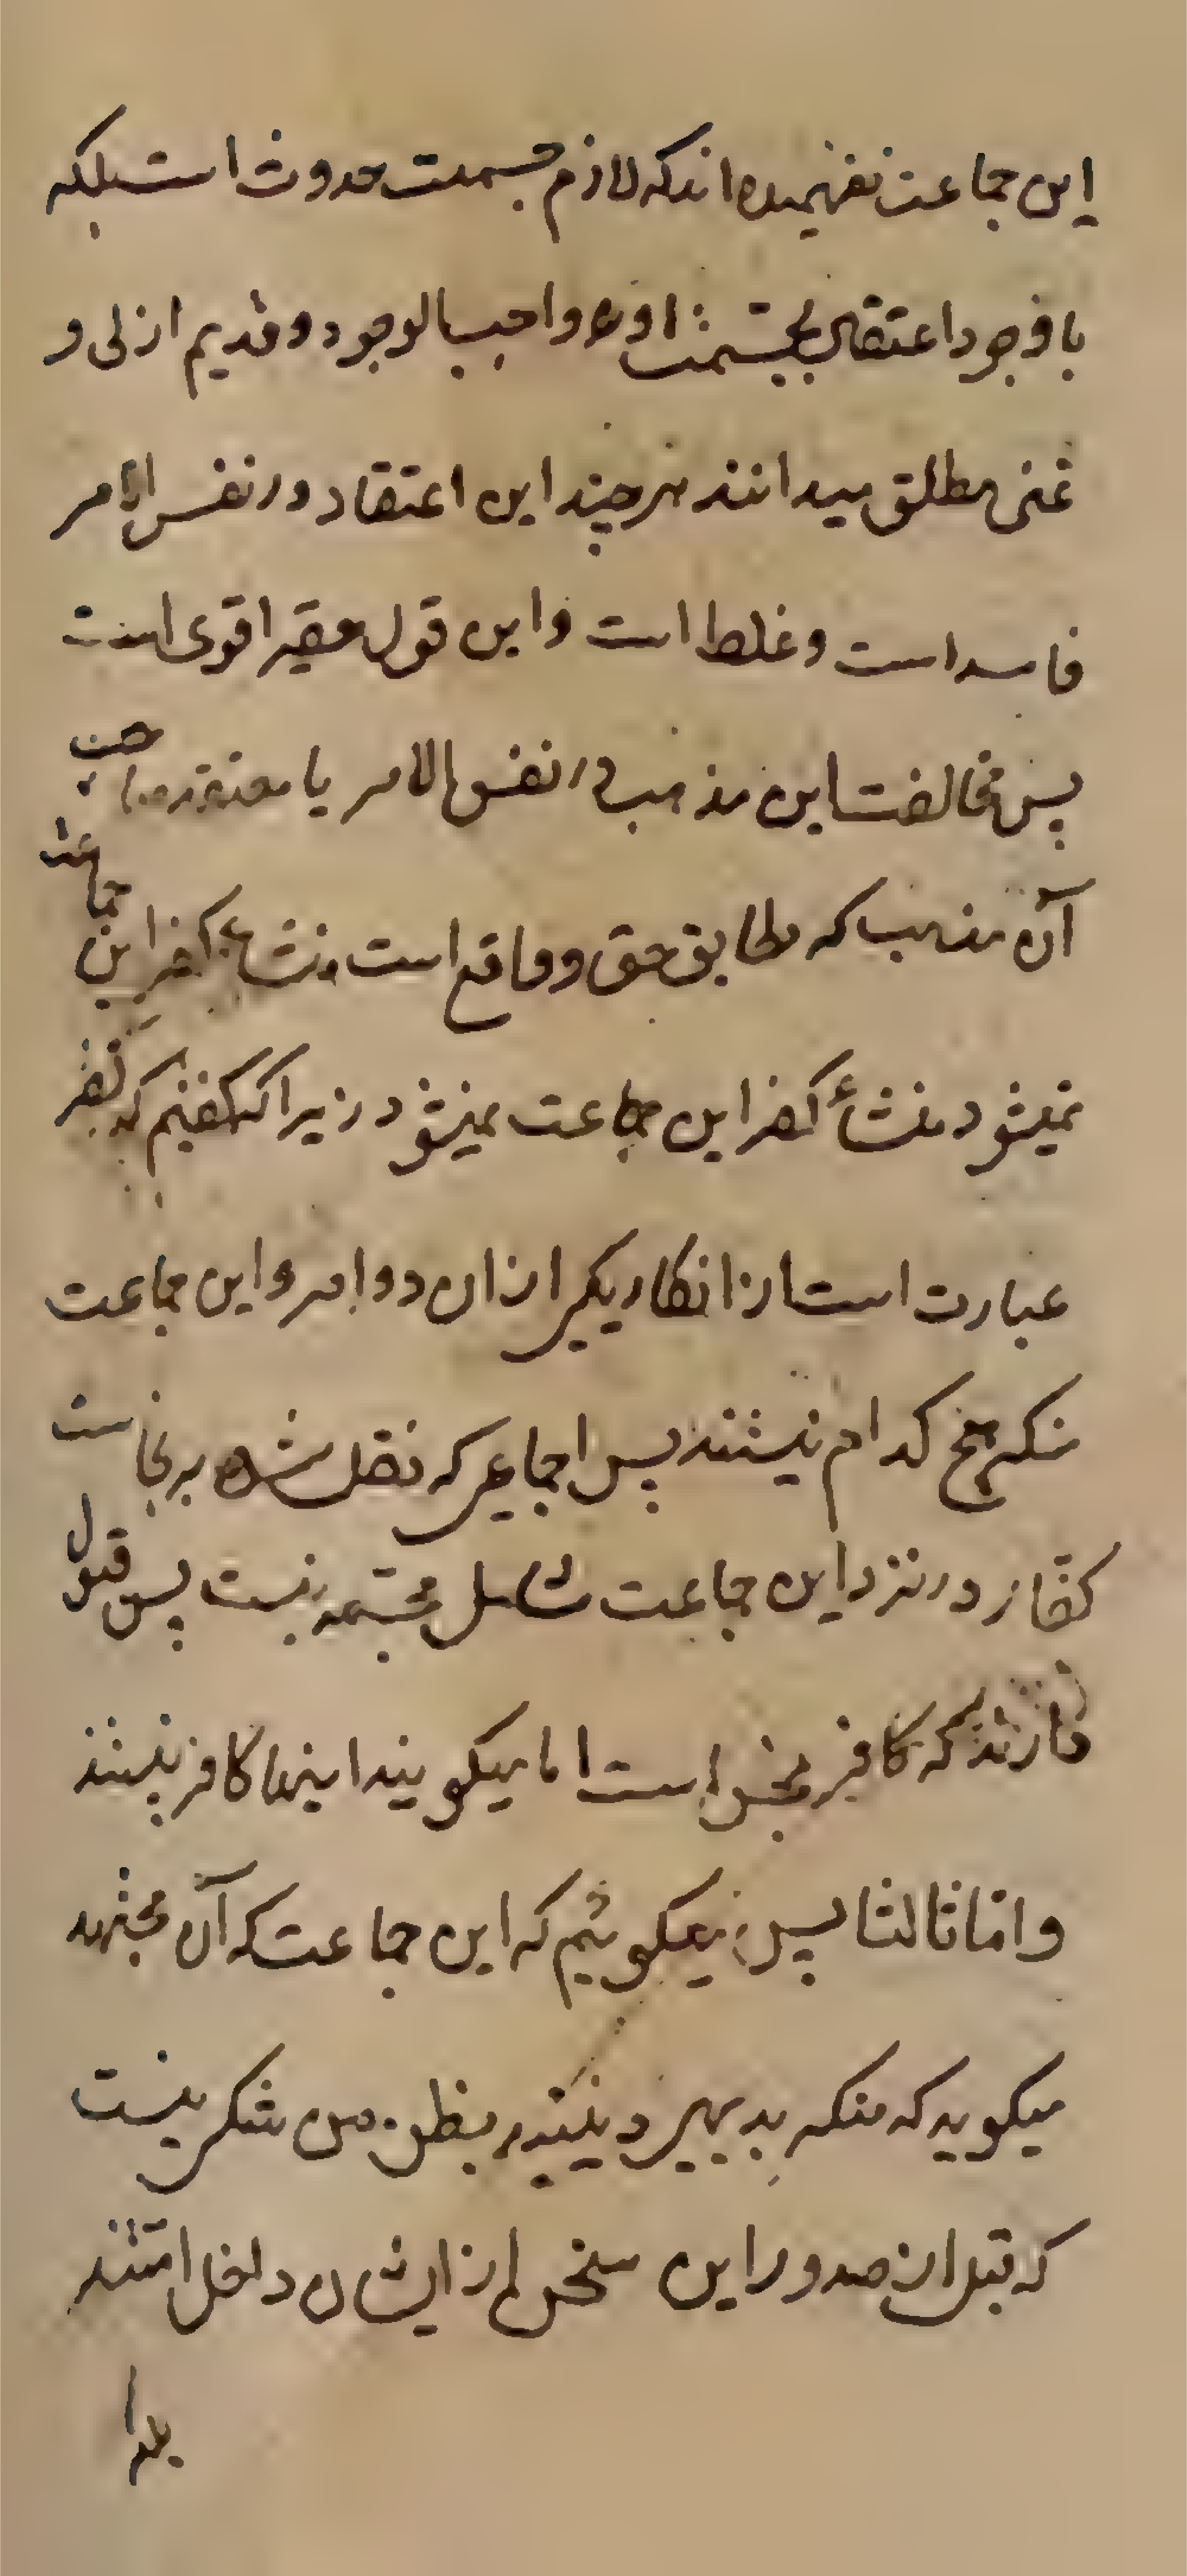 این جماعت نفهمیده اند که لازم جسمیت حدوث است بلکه
با وجود اعتقاد بجسمیت او را واجب الوجود و قدیم ازلی و
غنی مطلق میدانند هر چند این اعتقاد در نفس الامر
فاسد است و غلط است و این قول فقیر اقوی است
پس مخالفت این مذهب در نفس الامر با معتقد صاحب
آن مذهب که مطابق حق و واقع است منشاء کفر این جماعت
نمیشود منشأ کفر این جماعت نمیشود زیرا که گفتیم که کفر
عبارت است از انکار یکی از ان دو امر و این جماعت
منکر هیچ کدام نیستند پس اجماعی که نقل شده بر نجاست
کفار در نزد این جماعت شامل مجسمه نیست پس قبول
دارند که کافر نجس است اما میکویند اینها کافر نیستند
و اما ثالثا پس میکوئیم که این جماعت که آن مجتهد
میکوید که منکر بدیهی دینیند بظن من شکی نیست
که قبل از صدور این سخن از ایشان داخل امتند